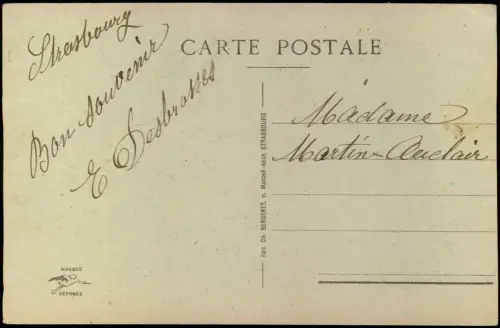 CARTE POSTALE
Strasbourg
Bon souvenir
E Desbrosses
Madame
Martin-Auclair
Edit. CH. BERGERET, 11, Marché-Neuf, STRASBOURG
MARQUE
DÉPOSÉE